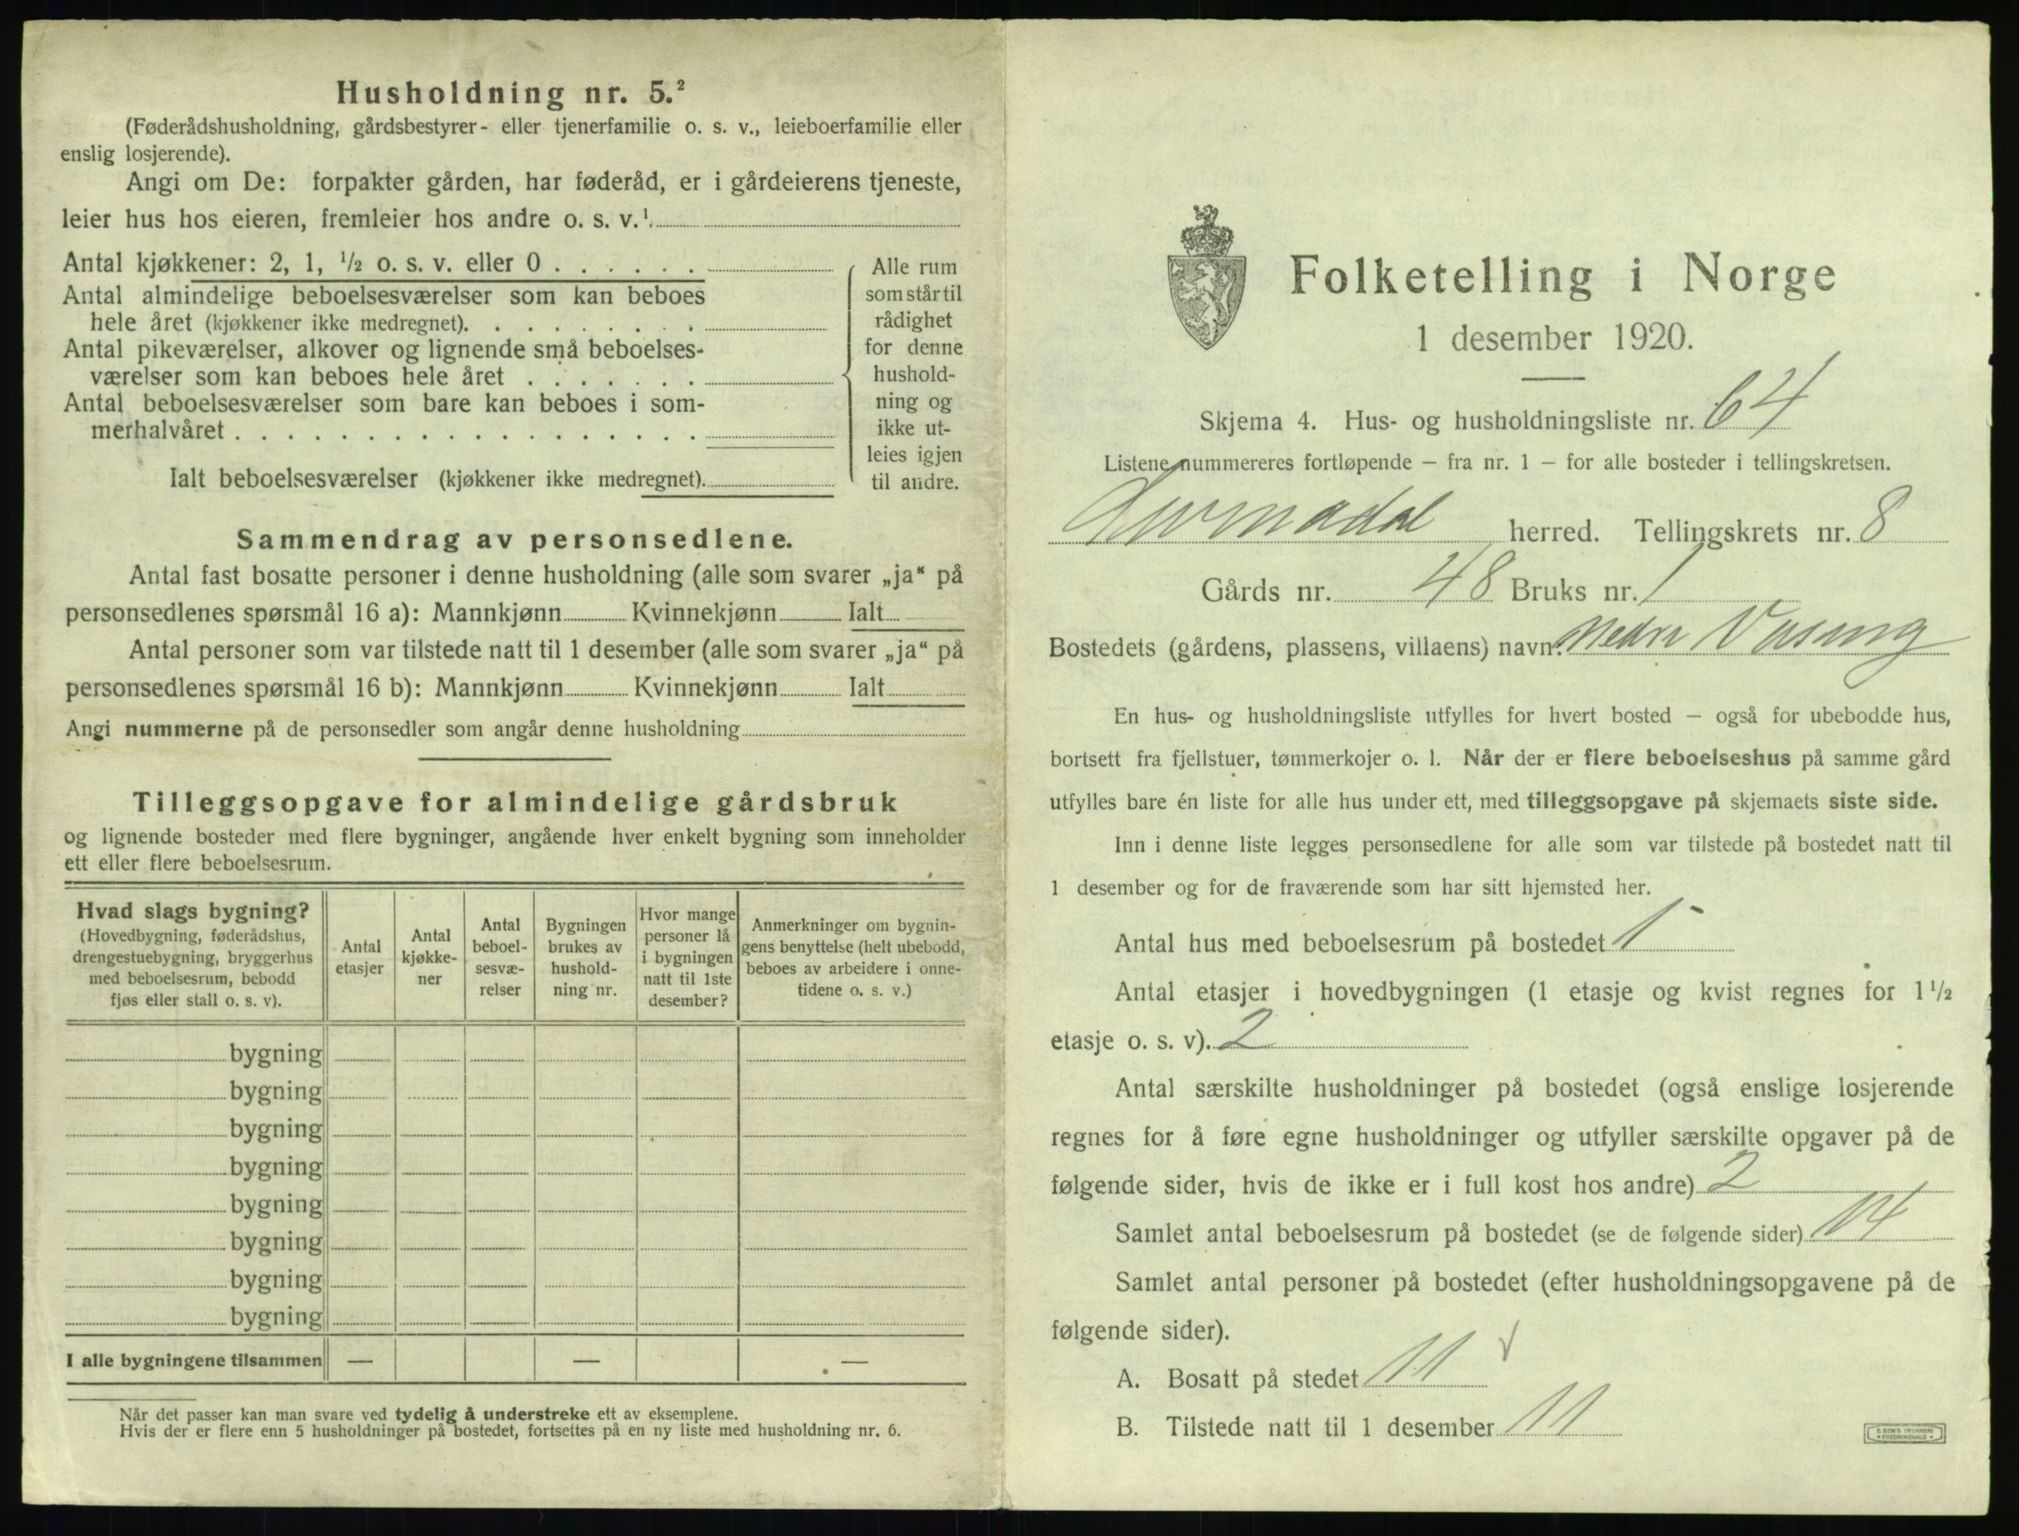 Husholdning nr. 5.²
(Føderådshusholdning, gårdsbestyrer- eller tjenerfamilie o. s. v., leieboerfamilie eller
enslig losjerende).
Angi om De: forpakter gården, har føderåd, er i gårdeierens tjeneste,
leier hus hos eieren, fremleier hos andre o. s. v.¹
Antal kjøkkener: 2, 1, ½ o. s. v. eller 0 . . . . . .
Antal almindelige beboelsesværelser som kan beboes
hele året (kjøkkener ikke medregnet). . . . . . . . .
Antal pikeværelser, alkover og lignende små beboelses-
værelser som kan beboes hele året . . . . . . .
Antal beboelsesværelser som bare kan beboes i som-
merhalvåret . . . . . . . . . . . . . . . . . .
Ialt beboelsesværelser (kjøkkener ikke medregnet).
Alle rum
som står til
rådighet
for denne
hushold-
ning og
ikke ut-
leies igjen
til andre.
Sammendrag av personsedlene.
Antal fast bosatte personer i denne husholdning (alle som svarer „ja“ på
personsedlenes spørsmål 16 a): Mannkjønn Kvinnekjønn Ialt
Antal personer som var tilstede natt til 1 desember (alle som svarer „ja“ på
personsedlenes spørsmål 16 b): Mannkjønn Kvinnekjønn Ialt
Angi nummerne på de personsedler som angår denne husholdning
Tilleggsopgave for almindelige gårdsbruk
og lignende bosteder med flere bygninger, angående hver enkelt bygning som inneholder
ett eller flere beboelsesrum.
Hvad slags bygning?
(Hovedbygning, føderådshus,
drengestuebygning, bryggerhus
med beboelsesrum, bebodd
fjøs eller stall o. s. v).
Antal
etasjer
Antal
kjøkke-
ner
Antal
beboel-
sesvæ-
relser
Bygningen
brukes av
hushold-
ning nr.
Hvor mange
personer lå
i bygningen
natt til 1ste
desember?
Anmerkninger om bygnin-
gens benyttelse (helt ubebodd,
beboes av arbeidere i onne-
tidene o. s. v.)
bygning
bygning
bygning
bygning
bygning
bygning
bygning
bygning
I alle bygningene tilsammen — — —
Når det passer kan man svare ved tydelig å understreke ett av eksemplene.
Hvis der er flere enn 5 husholdninger på bostedet, fortsettes på en ny liste med husholdning nr. 6.
Folketelling i Norge
1 desember 1920.
Skjema 4. Hus- og husholdningsliste nr. 64
Listene nummereres fortløpende — fra nr. 1 — for alle bosteder i tellingskretsen.
Surnadal herred. Tellingskrets nr. 8
Gårds nr. 48 Bruks nr. 1
Bostedets (gårdens, plassens, villaens) navn: Nedre
En hus- og husholdningsliste utfylles for hvert bosted — også for ubebodde hus,
bortsett fra fjellstuer, tømmerkojer o. l. Når der er flere beboelseshus på samme gård
utfylles bare én liste for alle hus under ett, med tilleggsopgave på skjemaets siste side.
Inn i denne liste legges personsedlene for alle som var tilstede på bostedet natt til
1 desember og for de fraværende som har sitt hjemsted her.
Antal hus med beboelsesrum på bostedet 1
Antal etasjer i hovedbygningen (1 etasje og kvist regnes for 1½
etasje o. s. v). 2
Antal særskilte husholdninger på bostedet (også enslige losjerende
regnes for å føre egne husholdninger og utfyller særskilte opgaver på de
følgende sider, hvis de ikke er i full kost hos andre) 2
Samlet antal beboelsesrum på bostedet (se de følgende sider) 14
Samlet antal personer på bostedet (efter husholdningsopgavene på de
følgende sider).
A. Bosatt på stedet 11 v
B. Tilstede natt til 1 desember 11